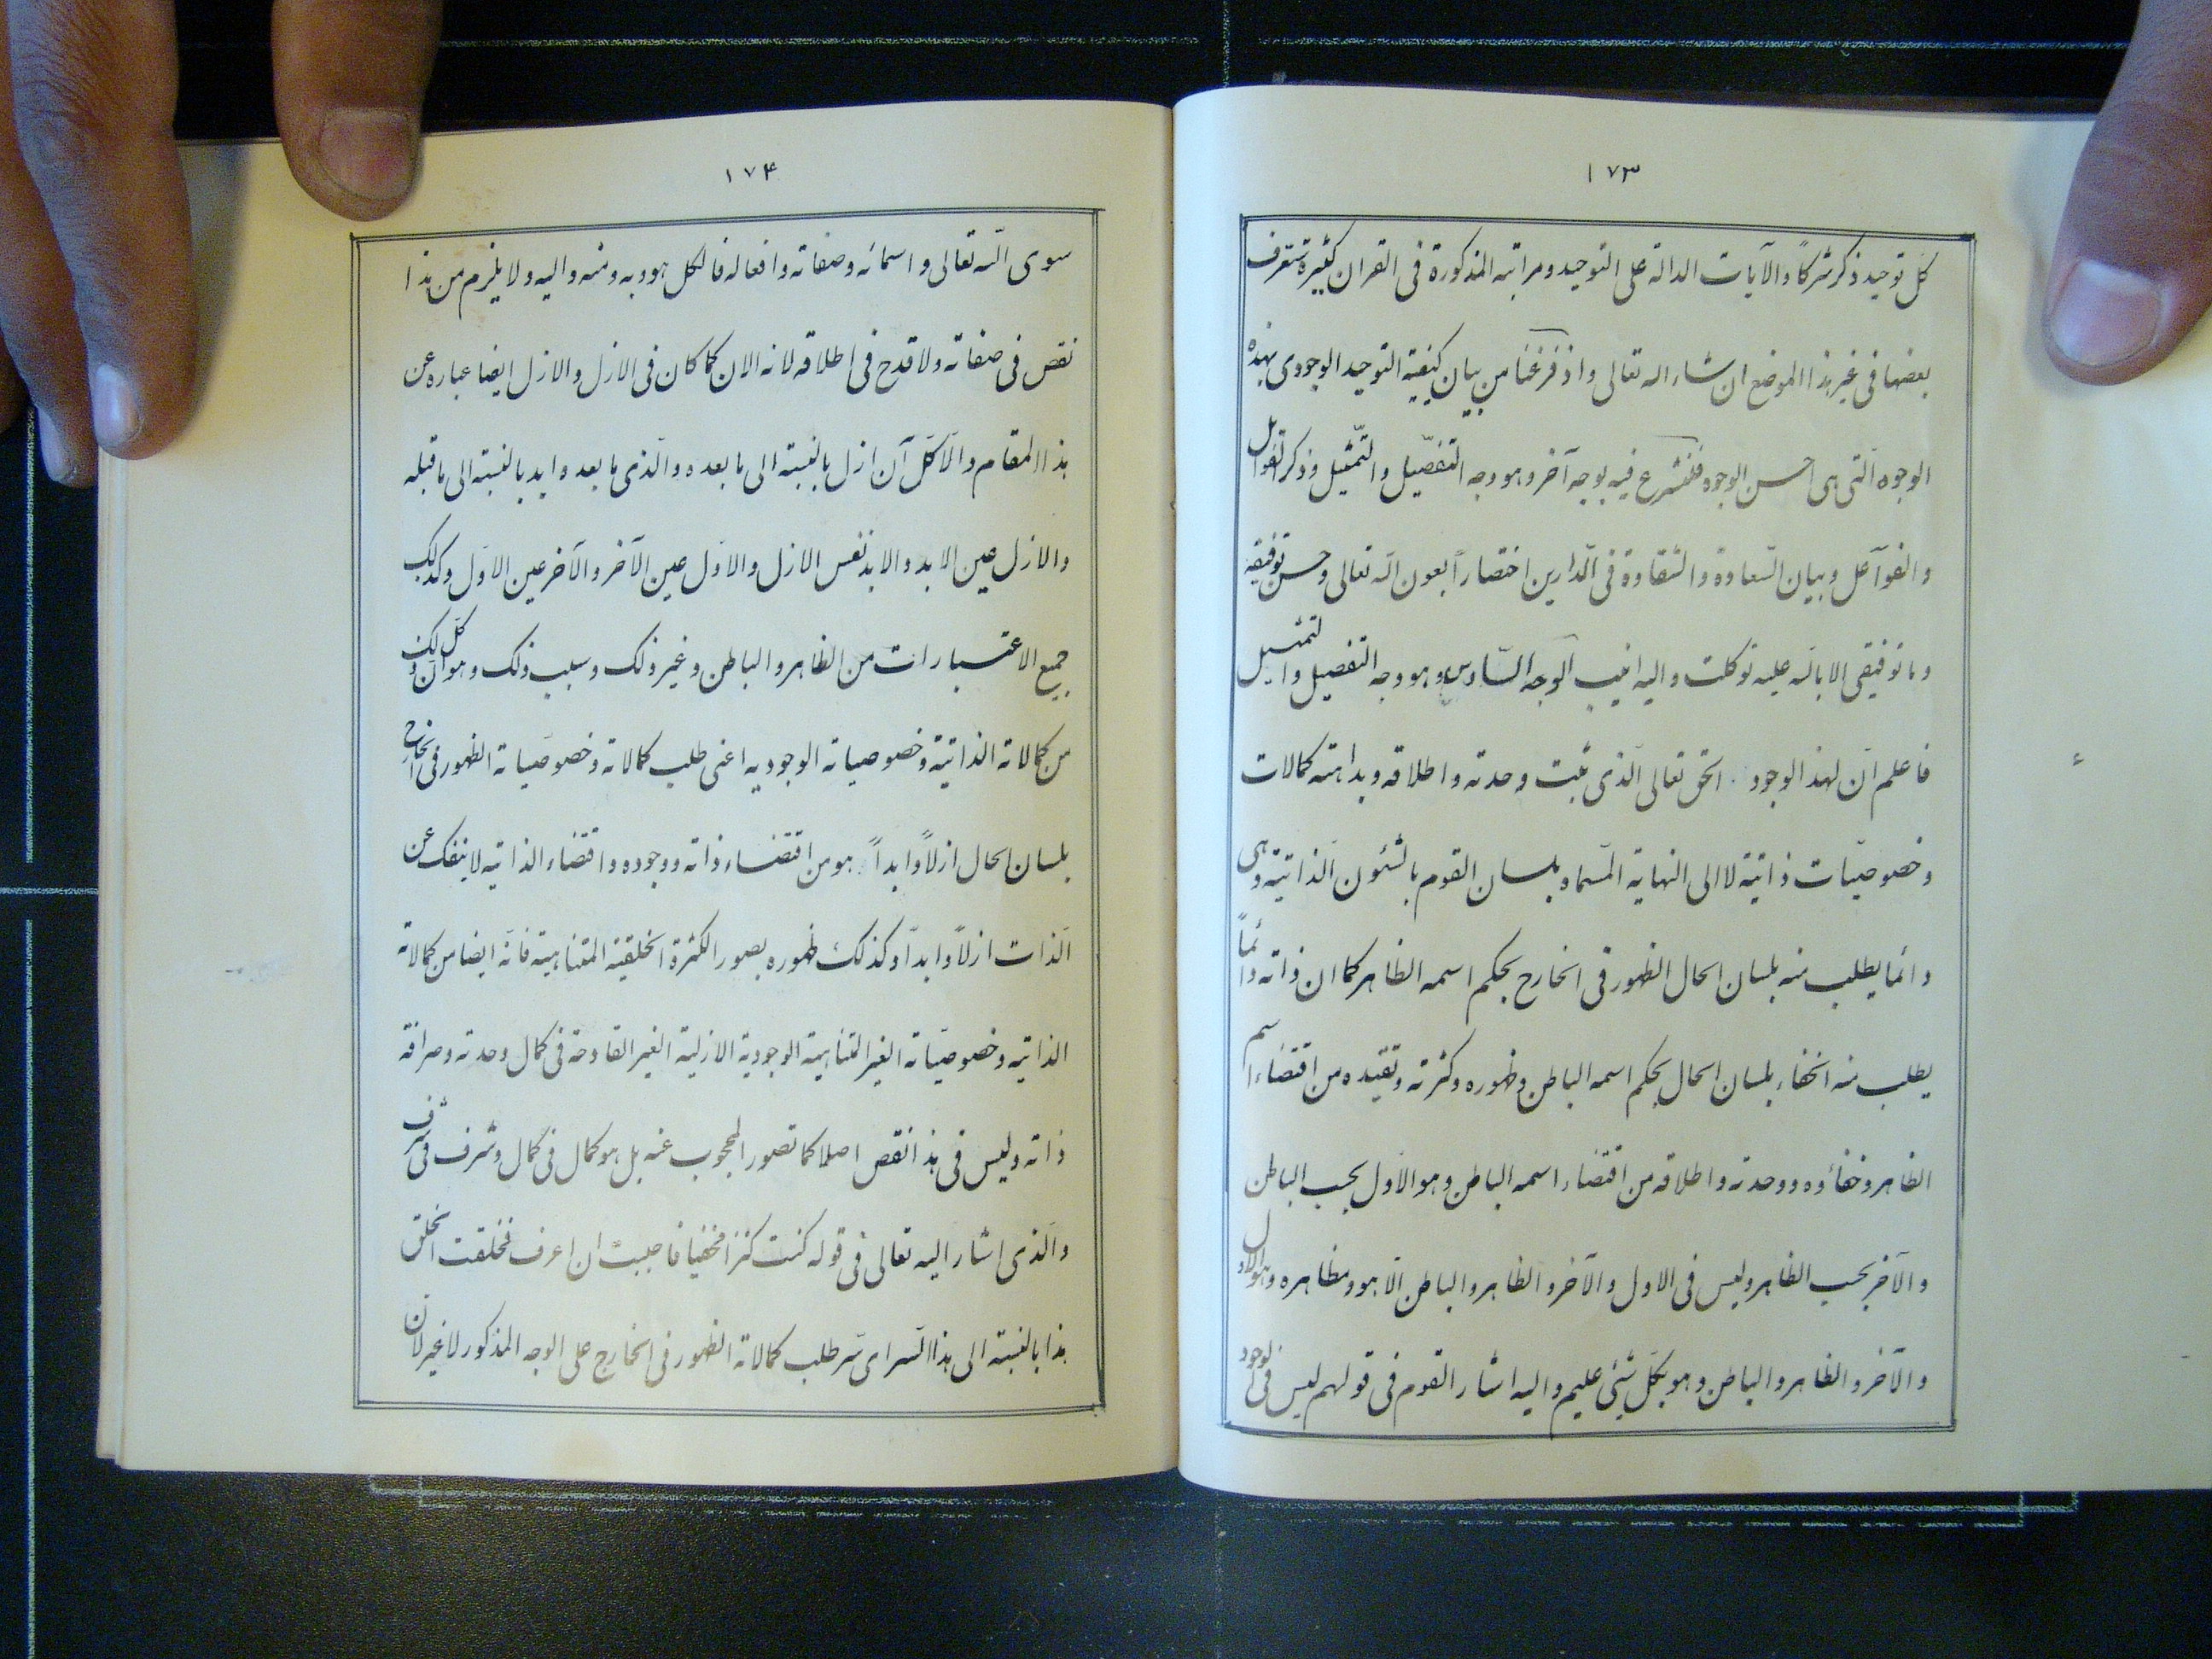 ١٧٣
كل توحيد ذكر شركاً والآيات الدالة على التوحيد ومراتبه المذكورة فى القران كثيرة ستعرف
بعضها فى غير هذا الموضع ان شاء اله تعالى واذ فرغنا من بيان كيفية التوحيد الوجودى بهذه
الوجوه الّتى هى احسن الوجوه فلنشرع فيه بوجه آخر وهو وجه التفصيل والتّمثيل وذكر القوابل
والفوآعل وبيان السّعادة والشّقاوة فى الّدارين اختصاراً بعون الله تعالى وحسن توفيقه
وما توفيقى الا بالله عليه توكلت واليه انيب الوجه السّادس وهو وجه التفصيل والتمثيل
فاعلم انّ لهذ الوجود الحق تعالى الّذى ثبت وحدته واطلاقه وبداهته كمالات
وخصوصيّات ذاتيّة لا الى النهاية المسّماه بلسان القوم بالشئون الّذاتيّة وهى
دائما يطلب منه بلسان الحال الظهور فى الخارج بحكم اسمه الظاهر كما ان ذاته دائماً
يطلب منه الخفاء بلسان الحال بحكم اسمه الباطن وظهوره وكثرته وتقيّده من اقتضاء اسم
الظاهر وخفاؤه ووحدته واطلاقه من اقتضاء اسمه الباطن وهو الاوّل بحسب الباطن
والآخر بحسب الظاهر وليس فى الاول والآخر والظاهر والباطن الّا هو ومظاهره وهو الاول
والآخر والظاهر والباطن وهو بكلّ شيئ عليم واليه اشار القوم فى قولهم ليس فى الوجود
١٧۴
سوى الله تعالى واسمائه وصفاته وافعاله فالكل هو وبه ومنه واليه ولا يلزم من هذا
نقص فى صفاته ولا قدح فى اطلاقه لانه الان كما كان فى الازل والازل ايضا عباره عن
هذا المقام والّا كلّ آن ازل بالنسبة الى ما بعده والّذى ما بعد وابد بالنسبة الى ما قبله
والازل عين الابد والابد نفس الازل والاوّل عين الآخر والآخر عين الاوّل وكذلك
جميع الاعتبارات من الظاهر والباطن وغير ذلك وسبب ذلك وهو انّ كلّ ذلك
من كمالاته الذاتيّة وخصوصياته الوجوديه اعنى طلب كمالاته وخصوصيّاته الظهور فى الخارج
بلسان الحال ازلاً وابداً هو من اقتضاء ذاته ووجوده واقتضاء الذاتيه لا ينفك عن
الّذات ازلاً وابداً وكذلك ظهوره بصور الكثرة الخلقيّة المتناهية فانّه ايضا من كمالاته
الذاتيه وخصوصيّاته الغير المتناهية الوجودية الازلية الغير القادحة فى كمال وحدته وصرافة
ذاته وليس فى هذا نقص اصلا كما تصور المحجوب عنه بل هو كمال فى كمال وشرف فى شرف
والّذى اشار اليه تعالى فى قوله كنت كنزا مخفيا فاحببت ان اعرف فخلقت الخلق
هذا بالنسبة الى هذا السّر اى سّر طلب كمالاته الظهور فى الخارج على الوجه المذكور لا غير لان